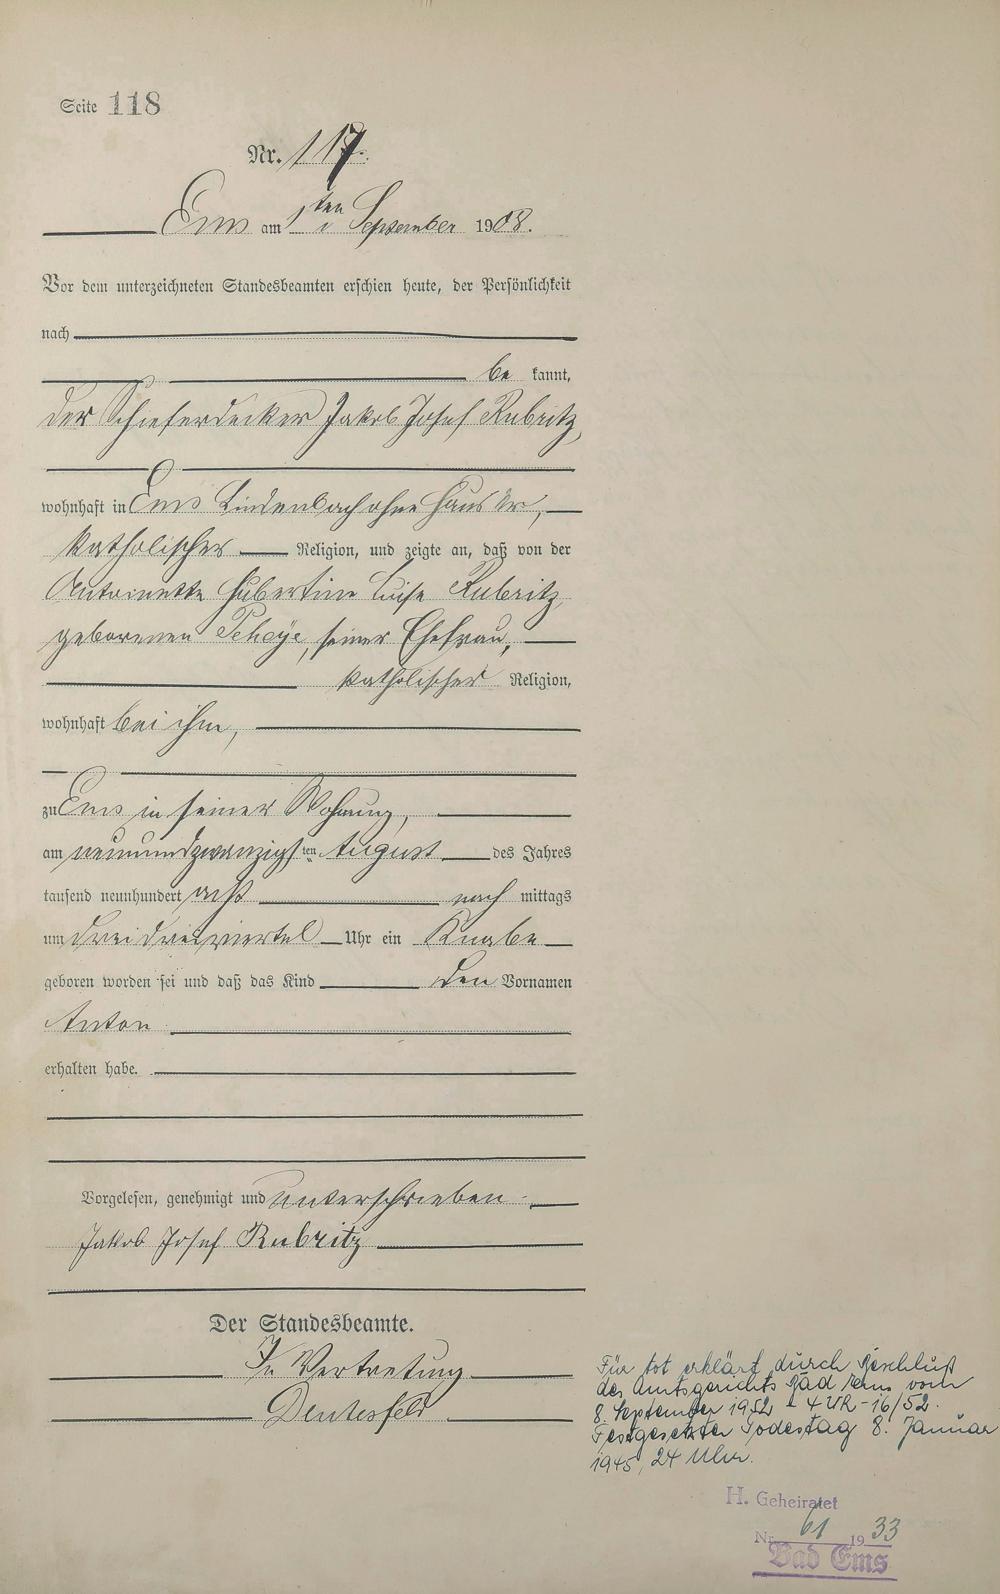 Seite 118
Nr. 117.
Ems am 1ten September 1908.
Vor dem unterzeichneten Standesbeamten erschien heute, der Persönlichkeit
nach
be kannt,
der Schieferdecker Jakob Josef Rubritz,
wohnhaft in Ems Lindenbach ohne Haus Nr,
katholischer Religion, und zeigte an, daß von der
Antoinette Hubertine Luise Rubritz
geborenen seiner Ehefrau,
katholischer Religion,
wohnhaft bei ihm,
zu Ems in seiner Wohnung,
am neunundzwanzigsten August des Jahres
tausend neunhundert acht nach mittags
um drei dreiviertel Uhr ein Knabe
geboren worden sei und daß das Kind den Vornamen
Anton
erhalten habe.
Vorgelesen, genehmigt und unterschrieben.
Jakob Josef Rubritz
Der Standesbeamte.
In Vertretung
Für tot erklärt durch Beschluß
des Amtsgerichts Bad Ems vom
8. September 1952 - 4 UR - 16/52.
Festgesetzter Todestag 8. Januar
1945, 24 Uhr.
H. Geheiratet
Nr. 61 1933
Bad Ems